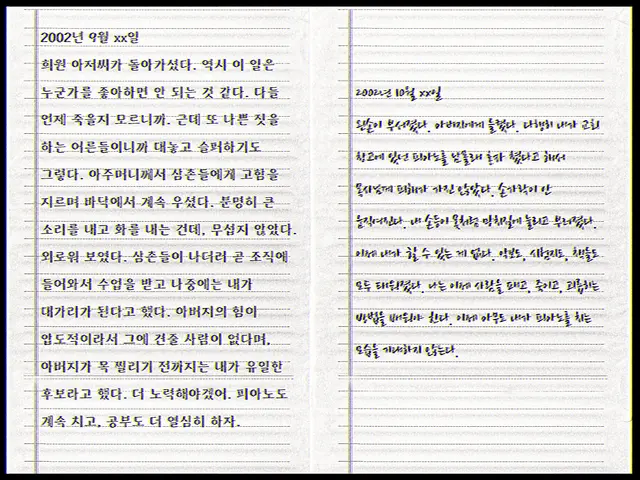 2002년 9월 xx일
희원 아저씨가 돌아가셨다. 역시 이 일은
누군가를 좋아하면 안 되는 것 같다. 다들
언제 죽을지 모르니까. 근데 또 나쁜 짓을
하는 어른들이니까 대놓고 슬퍼하기도
그렇다. 아주머니께서 삼촌들에게 고함을
지르며 바닥에서 계속 우셨다. 분명히 큰
소리를 내고 화를 내는 건데, 무섭지 않았다.
외로워 보였다. 삼촌들이 나더러 곧 조직에
들어와서 수업을 받고 나중에는 내가
대가리가 된다고 했다. 아버지의 힘이
압도적이라서 그에 견줄 사람이 없다며,
아버지가 목 찔리기 전까지는 내가 유일한
후보라고 했다. 더 노력해야겠어. 피아노도
계속 치고, 공부도 더 열심히 하자.
2002년 10월 xx일
왼손이 부서졌다. 아버지에게 들켰다. 다행히 내가 교회
창고에 있던 피아노를 몰래 혼자 쳤다고 해서
목사님께 피해가 가진 않았다. 손가락이 안
움직여진다. 내 손등이 망치질에 눌리고 부러졌다.
이제 내가 할 수 있는 게 없다. 악보도, 시험지도, 책들도
모두 태워졌다. 나는 이제 사람을 때리고, 죽이고, 괴롭히는
방법을 배워야 한다. 이제 아무도 내가 피아노를 치는
모습을 기대하지 않는다.